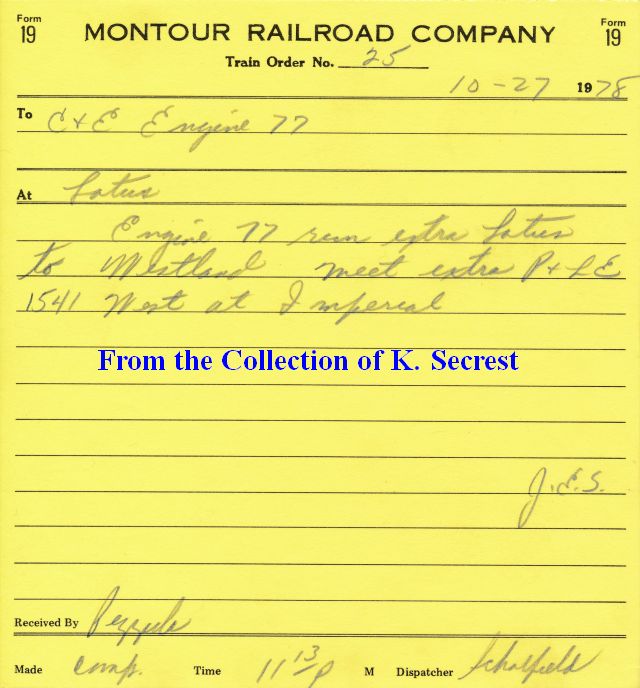 Form 19 MONTOUR RAILROAD COMPANY Form 19
Train Order No. 25
10-27 1978
To C+E Engine 77
At Lotus
Engine 77 run extra Lotus
to Westland meet extra P+LE
1541 West at Imperial
From the Collection of K. Secrest
J.E.S.
Received By
Made comp. Time 11 13/p M Dispatcher